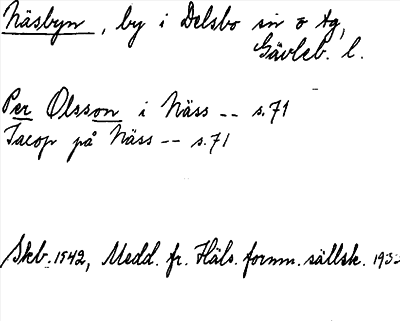 Näsbyn, by i Delsbo sn o tg,
Gävleb. l.
Per Olsson i Näss -- s.71
Jacop på Näss -- s.71
Skb. 1542, Medd. fr. Häls. fornm. sällsk.